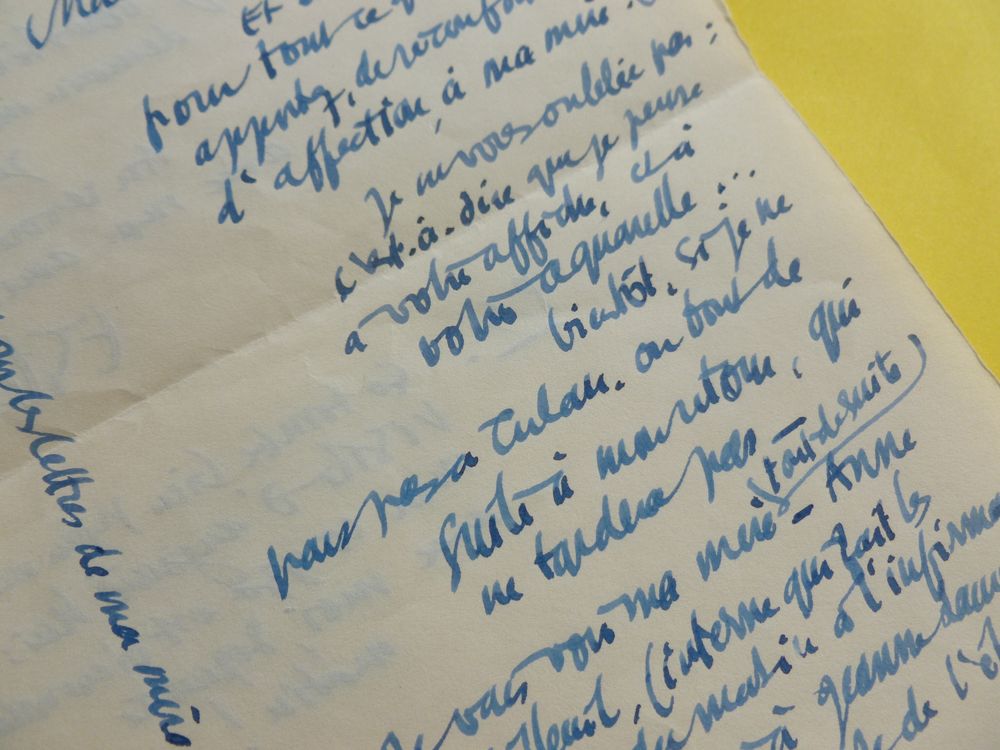 Et
pour tout ce
apporté, de réconfort
d'affection, à ma mère.
Je ne vous oublie pas :
c'est-à-dire que je pense
à votre affiche, et à
votre aquarelle :...
bientôt. Si je ne
pars pas à Culan. ou tout de
suite à mon retour, qui
ne tardera pas —
(tout de suite)
vais voir ma mère — Anne
(interne qui fait les
matin à l'infirme
à Jeanne
de l'é
les lettres de ma mère